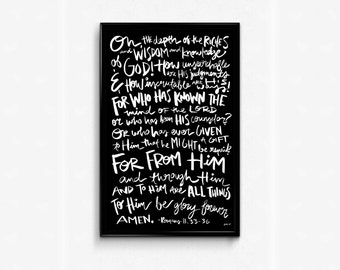 Oh THE depth OF the RICHES
and WISDOM and knowledge
of GOD! How unsearchable
are HIS judgments
& How inscrutable are HIS
FOR WHO HAS KNOWN THE
mind of the LORD
or who has been HIS counselor?
Or who has ever GIVEN
to Him that he MIGHT be repaid
A GIFT
FOR FROM Him
and through Him
AND TO Him are ALL THINGS
To Him be glory forever
AMEN. -Romans 11:33-36